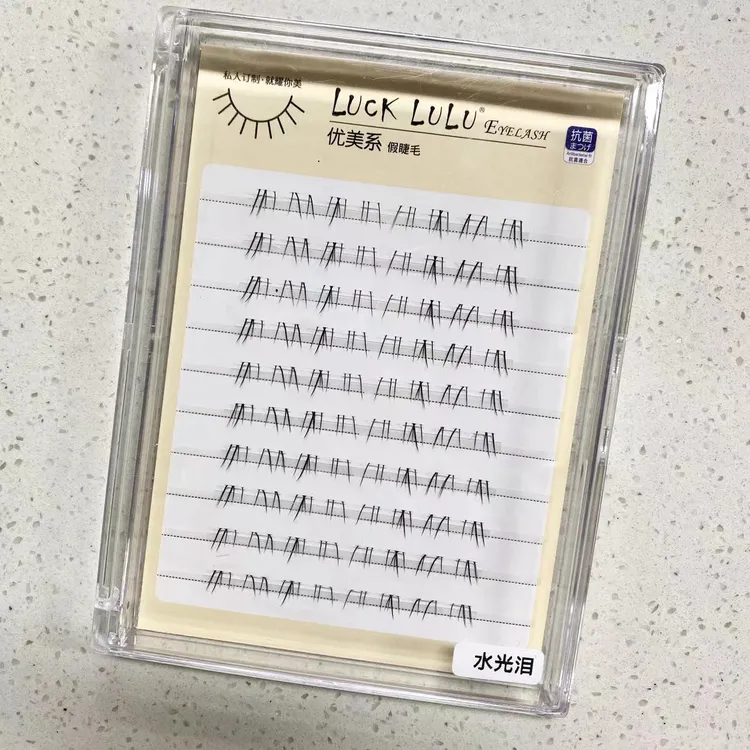 私人订制·就耀你美
LUCK LULU® EYELASH
优美系 假睫毛
抗菌
まつげ
抗菌適合
水光泪